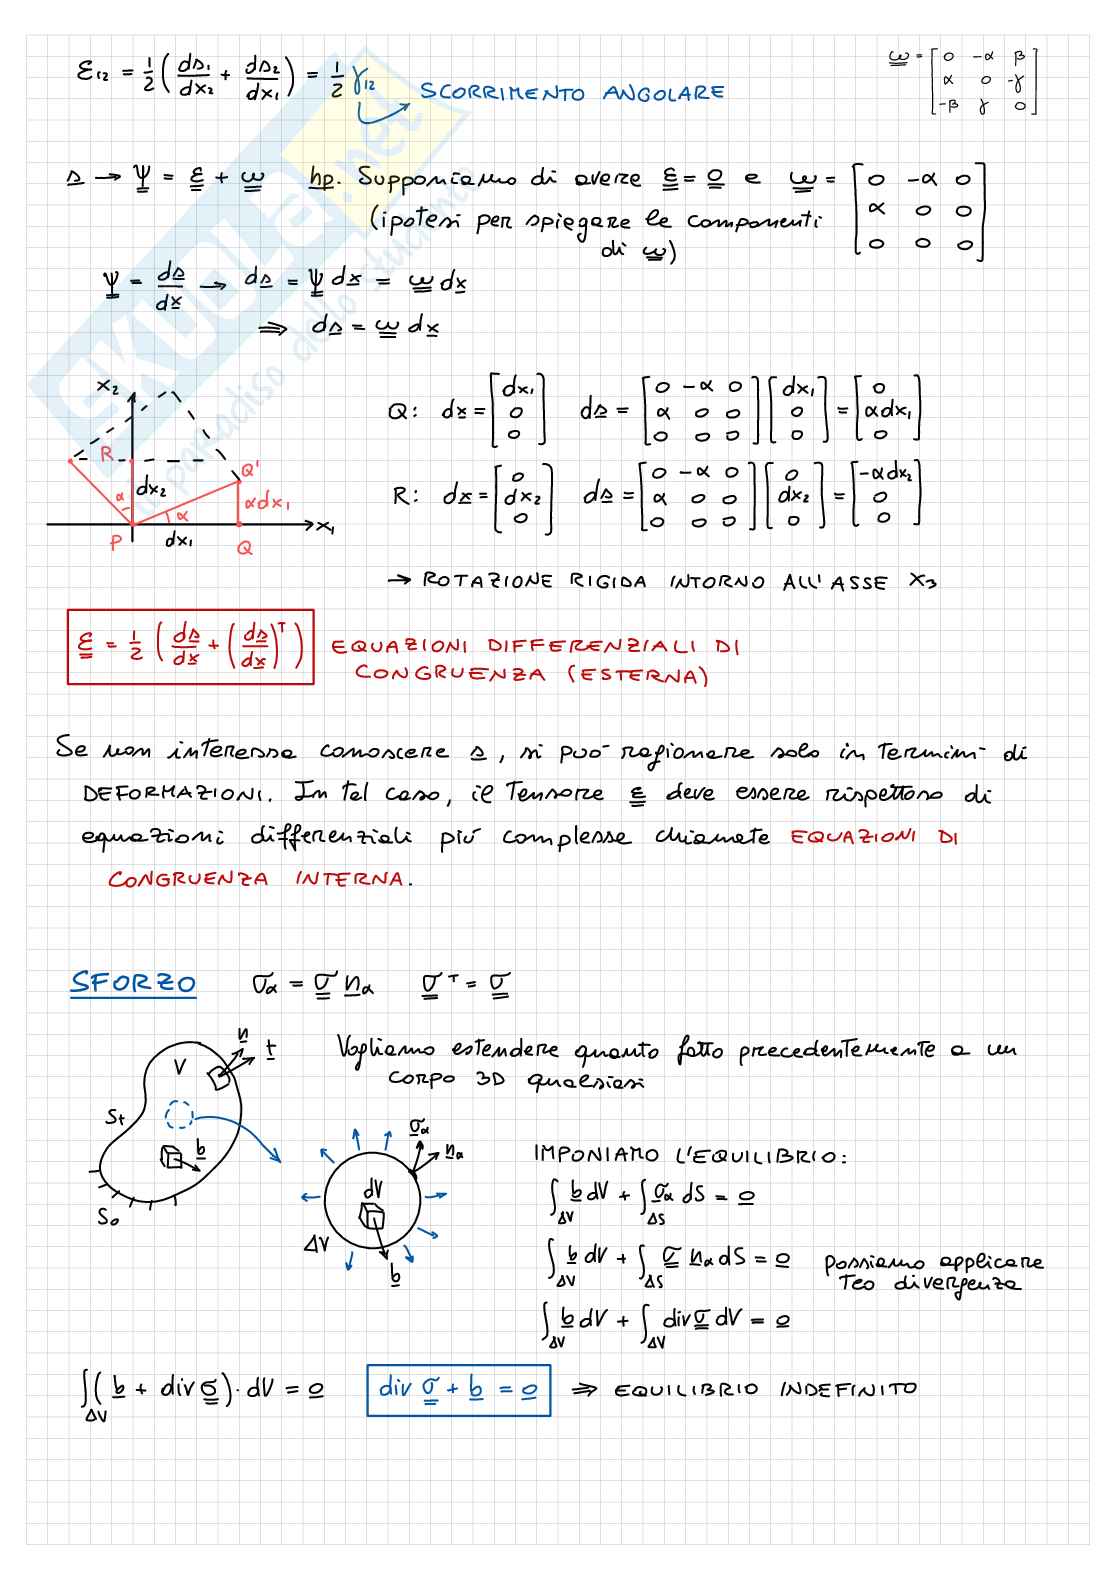 ε₁₂ = 1/2 (ds₁/dx₂ + ds₂/dx₁) = 1/2 γ₁₂
SCORRIMENTO ANGOLARE
ω = [0 -α β
α 0 -γ
-β γ 0]
s → Ψ = ε + ω hp. Supponiamo di avere ε = 0 e ω = [0 -α 0
α 0 0
0 0 0]
(ipotesi per spiegare le componenti
di ω)
Ψ = ds/dx → ds = Ψ dx = ω dx
⇒ ds = ω dx
x₂
R
α
dx₂
Q'
α
αdx₁
x₁
P
dx₁
Q
Q: dx = [dx₁ 0 0] ds = [0 -α 0
α 0 0
0 0 0] [dx₁ 0 0] = [0 αdx₁ 0]
R: dx = [0 dx₂ 0] ds = [0 -α 0
α 0 0
0 0 0] [0 dx₂ 0] = [-αdx₂ 0 0]
→ ROTAZIONE RIGIDA INTORNO ALL'ASSE X₃
ε = 1/2 (ds/dx + (ds/dx)ᵀ) EQUAZIONI DIFFERENZIALI DI
CONGRUENZA (ESTERNA)
Se non interessa conoscere s, si può ragionare solo in termini di
DEFORMAZIONI. In tal caso, il tensore ε deve essere rispettoso di
equazioni differenziali più complesse chiamate EQUAZIONI DI
CONGRUENZA INTERNA.
SFORZO σα = σ nα σᵀ = σ
n
t
V
St
b
S₀
Vogliamo estendere quanto fatto precedentemente a un
corpo 3D qualsiasi
σα
nα
dV
ΔV
b
IMPONIAMO L'EQUILIBRIO:
∫ΔV b dV + ∫ΔS σα dS = 0
∫ΔV b dV + ∫ΔS σ nα dS = 0 possiamo applicare
Teo divergenza
∫ΔV b dV + ∫ΔV div σ dV = 0
∫ΔV (b + div σ) · dV = 0 div σ + b = 0 ⇒ EQUILIBRIO INDEFINITO
SKUOLA.net